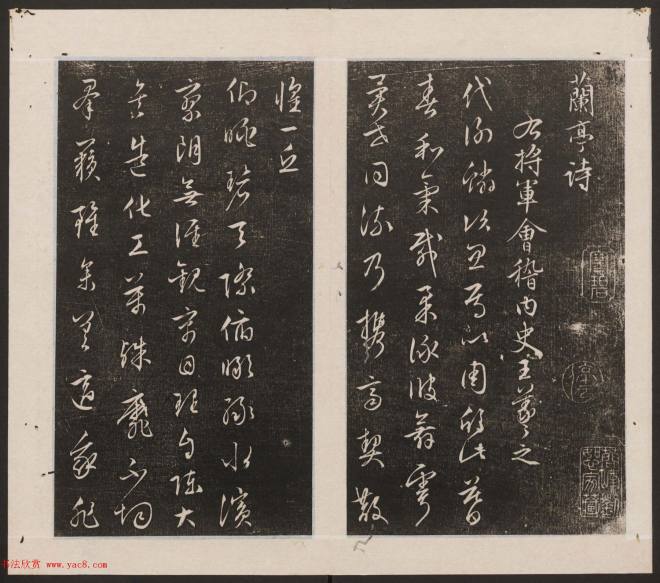 蘭亭詩
右將軍會稽內史王羲之
代謝鱗次忽焉以周欣此暮
春和氣載柔詠彼舞雩
異世同流乃攜齊契散
懷一丘
仰眺碧天際俯瞰綠水濱
寥朗無涯觀寓目理自陳大
矣造化工萬殊靡不均
羣籟雖參差適我非
书法欣赏 www.yac8.com